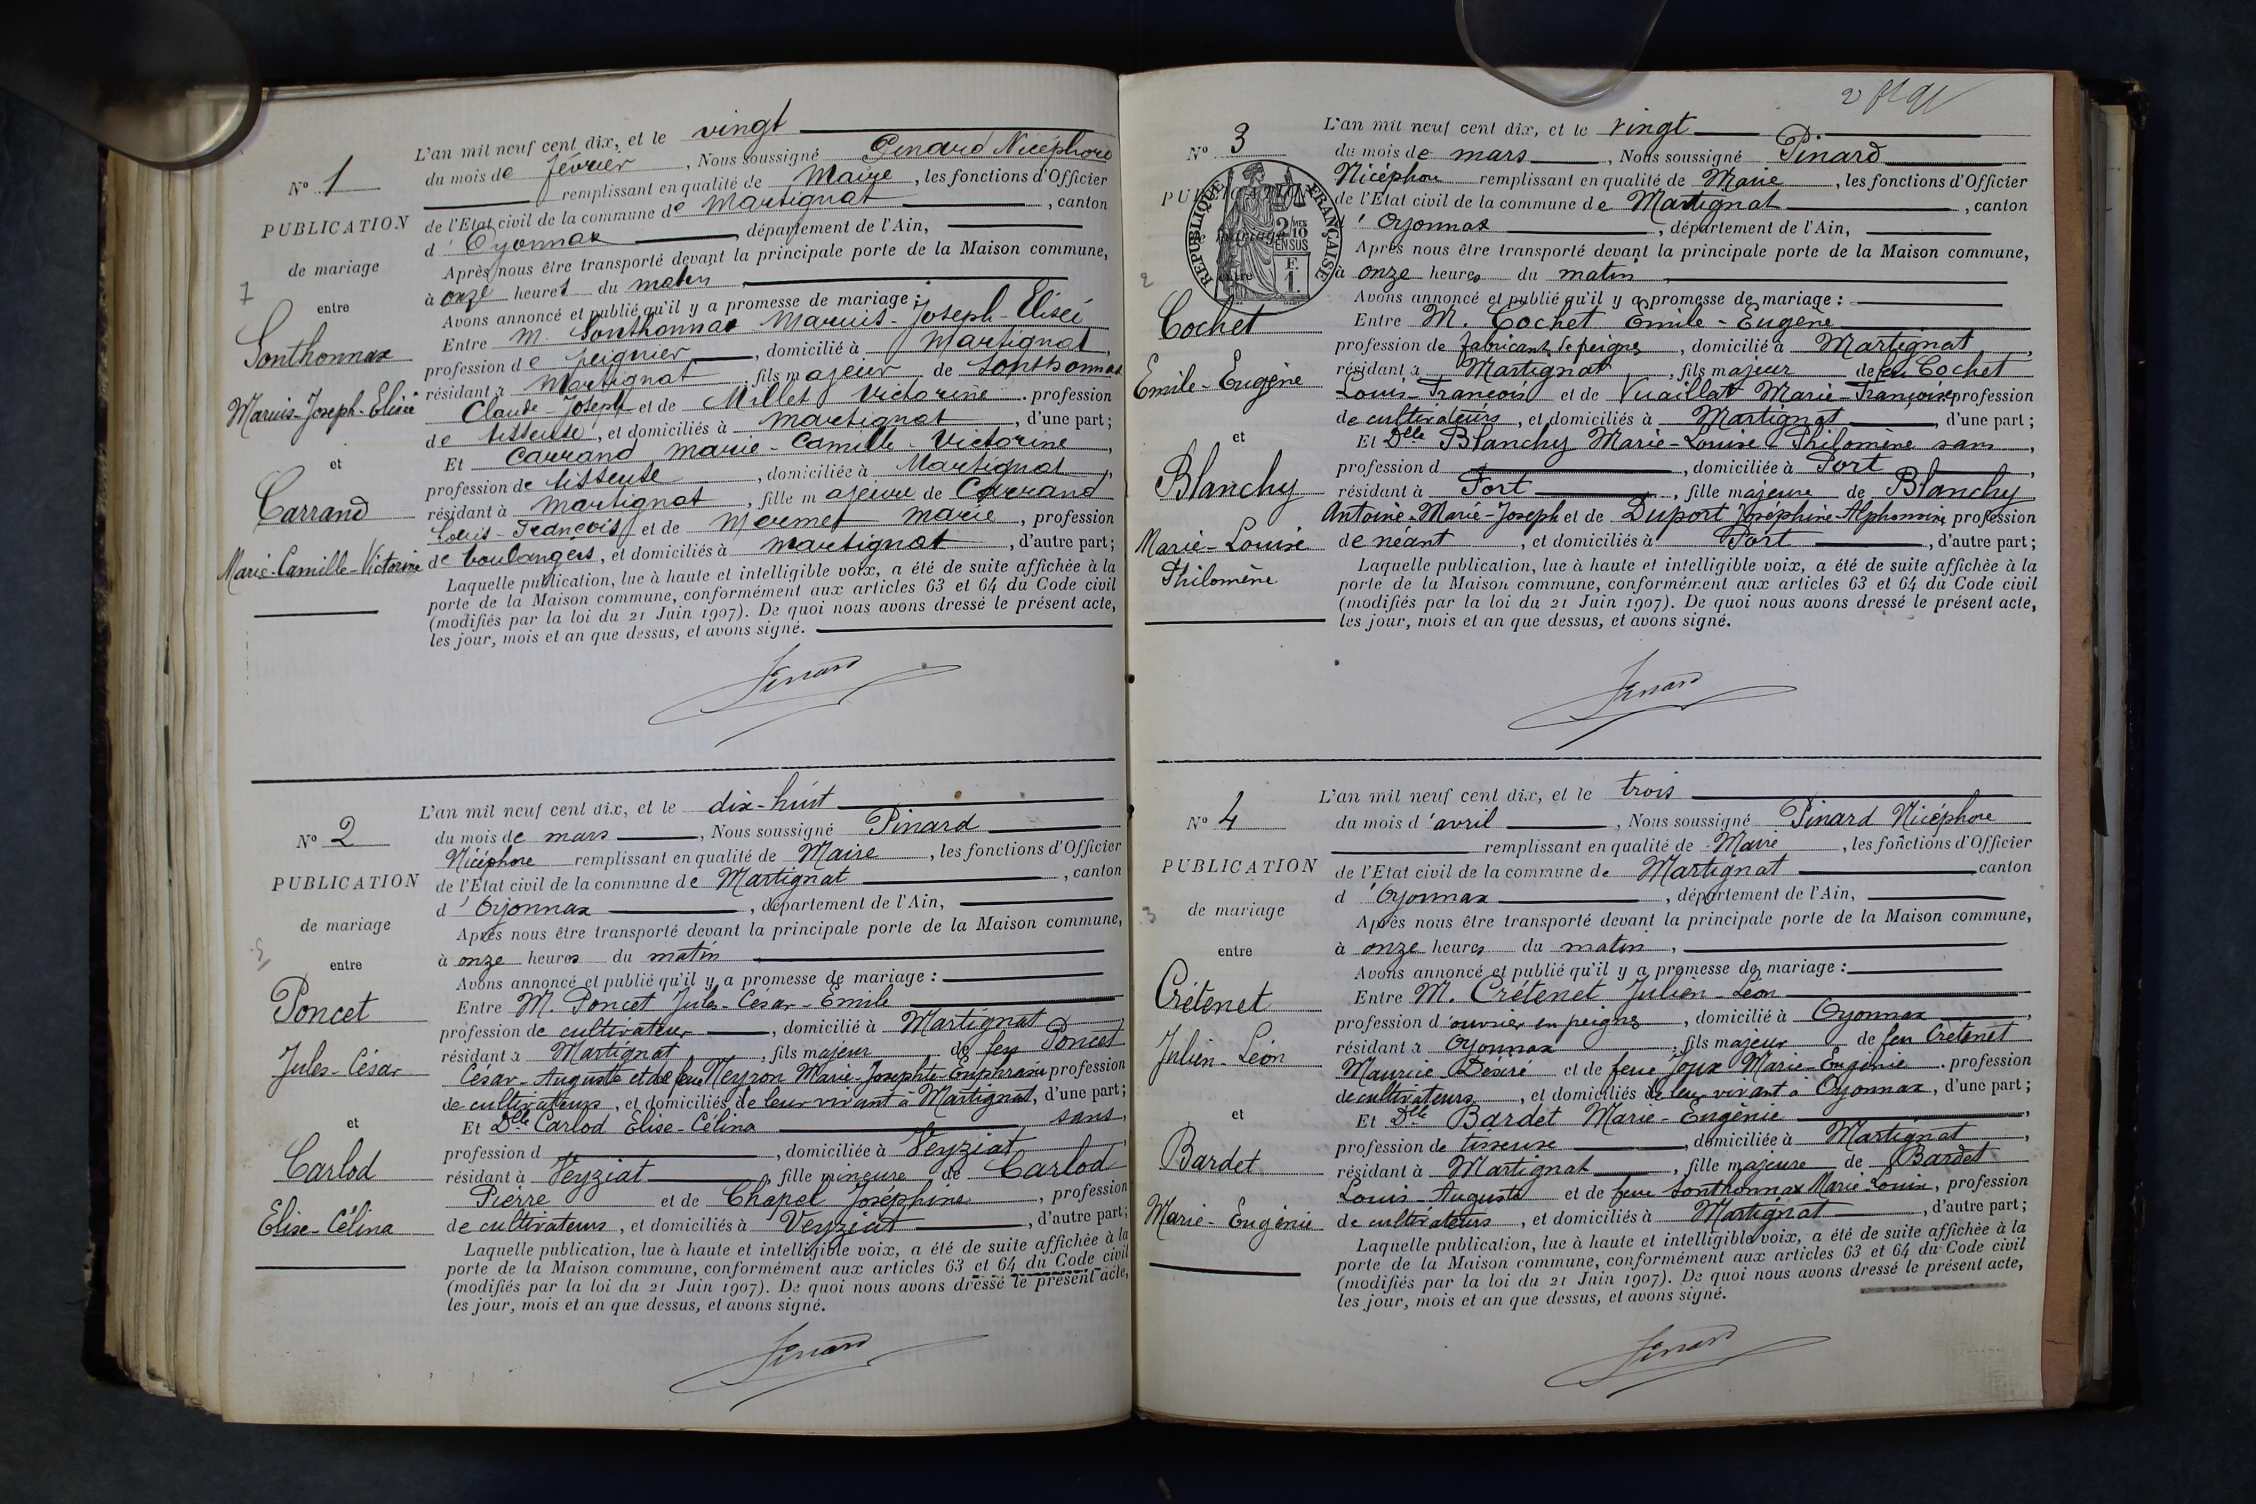 N° 1
PUBLICATION
de mariage
entre
Sonthonnax
Marius-Joseph-Elisée
et
Carrand
Marie-Camille-Victorine
L'an mil neuf cent dix, et le vingt
du mois de février, Nous soussigné Pinard Nicéphore
remplissant en qualité de Maire, les fonctions d'Officier
de l'Etat civil de la commune de Martignat, canton
d'Oyonnax, département de l'Ain,
Après nous être transporté devant la principale porte de la Maison commune,
à onze heures du matin
Avons annoncé et publié qu'il y a promesse de mariage :
Entre M. Sonthonnax Marius-Joseph-Elisée
profession de peignier, domicilié à Martignat,
résidant à Martignat, fils majeur de Sonthonnax
Claude-Joseph et de Millet Victorine, profession
de tisseuse, et domiciliés à Martignat, d'une part;
Et Carrand Marie-Camille-Victorine,
profession de tisseuse, domiciliée à Martignat,
résidant à Martignat, fille majeure de Carrand
Louis-François et de Mermet Marie, profession
de boulangers, et domiciliés à Martignat, d'autre part;
Laquelle publication, lue à haute et intelligible voix, a été de suite affichée à la
porte de la Maison commune, conformément aux articles 63 et 64 du Code civil
(modifiés par la loi du 21 Juin 1907). De quoi nous avons dressé le présent acte,
les jour, mois et an que dessus, et avons signé.
Pinard
N° 2
PUBLICATION
de mariage
entre
Poncet
Jules-César
et
Carlod
Elise-Célina
L'an mil neuf cent dix, et le dix-huit
du mois de mars, Nous soussigné Pinard
Nicéphore remplissant en qualité de Maire, les fonctions d'Officier
de l'Etat civil de la commune de Martignat, canton
d'Oyonnax, département de l'Ain,
Après nous être transporté devant la principale porte de la Maison commune,
à onze heures du matin
Avons annoncé et publié qu'il y a promesse de mariage :
Entre M. Poncet Jules-César-Emile
profession de cultivateur, domicilié à Martignat,
résidant à Martignat, fils majeur de feu Poncet
César-Auguste et de feue Neyron Marie-Josephte-Euphrasie profession
de cultivateurs, et domiciliés de leur vivant à Martignat, d'une part;
Et Delle Carlod Elise-Célina sans,
profession d, domiciliée à Veyziat,
résidant à Veyziat, fille mineure de Carlod
Pierre et de Chapel Joséphine, profession
de cultivateurs, et domiciliés à Veyziat, d'autre part;
Laquelle publication, lue à haute et intelligible voix, a été de suite affichée à la
porte de la Maison commune, conformément aux articles 63 et 64 du Code civil
(modifiés par la loi du 21 Juin 1907). De quoi nous avons dressé le présent acte,
les jour, mois et an que dessus, et avons signé.
Pinard
N° 3
PUBLICATION
de mariage
entre
RÉPUBLIQUE FRANÇAISE
2/10
EN SUS
F.
1
Cochet
Emile-Eugène
et
Blanchy
Marie-Louise
Philomène
L'an mil neuf cent dix, et le vingt
du mois de mars, Nous soussigné Pinard
Nicéphore remplissant en qualité de Maire, les fonctions d'Officier
de l'Etat civil de la commune de Martignat, canton
d'Oyonnax, département de l'Ain,
Après nous être transporté devant la principale porte de la Maison commune,
à onze heures du matin
Avons annoncé et publié qu'il y a promesse de mariage :
Entre M. Cochet Emile-Eugène
profession de fabricant de peignes, domicilié à Martignat,
résidant à Martignat, fils majeur de feu Cochet
Louis-François et de Vuaillat Marie-Françoise profession
de cultivateurs, et domiciliés à Martignat, d'une part;
Et Delle Blanchy Marie-Louise Philomène sans,
profession d, domiciliée à Port,
résidant à Port, fille majeure de Blanchy
Antoine-Marie-Joseph et de Duport Joséphine-Alphonsine profession
de néant, et domiciliés à Port, d'autre part;
Laquelle publication, lue à haute et intelligible voix, a été de suite affichée à la
porte de la Maison commune, conformément aux articles 63 et 64 du Code civil
(modifiés par la loi du 21 Juin 1907). De quoi nous avons dressé le présent acte,
les jour, mois et an que dessus, et avons signé.
Pinard
N° 4
PUBLICATION
de mariage
entre
Crétenet
Julien-Léon
et
Bardet
Marie-Eugénie
L'an mil neuf cent dix, et le trois
du mois d'avril, Nous soussigné Pinard Nicéphore
remplissant en qualité de Maire, les fonctions d'Officier
de l'Etat civil de la commune de Martignat canton
d'Oyonnax, département de l'Ain,
Après nous être transporté devant la principale porte de la Maison commune,
à onze heures du matin,
Avons annoncé et publié qu'il y a promesse de mariage :
Entre M. Crétenet Julien-Léon
profession d'ouvrier en peignes, domicilié à Oyonnax,
résidant à Oyonnax, fils majeur de feu Crétenet
Maurice-Désiré et de feue Joux Marie-Eugénie, profession
de cultivateurs, et domiciliés de leur vivant à Oyonnax, d'une part;
Et Delle Bardet Marie-Eugénie,
profession de tisseuse, domiciliée à Martignat,
résidant à Martignat, fille majeure de Bardet
Louis-Auguste et de feue Sonthonnax Marie-Louise, profession
de cultivateurs, et domiciliés à Martignat, d'autre part;
Laquelle publication, lue à haute et intelligible voix, a été de suite affichée à la
porte de la Maison commune, conformément aux articles 63 et 64 du Code civil
(modifiés par la loi du 21 Juin 1907). De quoi nous avons dressé le présent acte,
les jour, mois et an que dessus, et avons signé.
Pinard